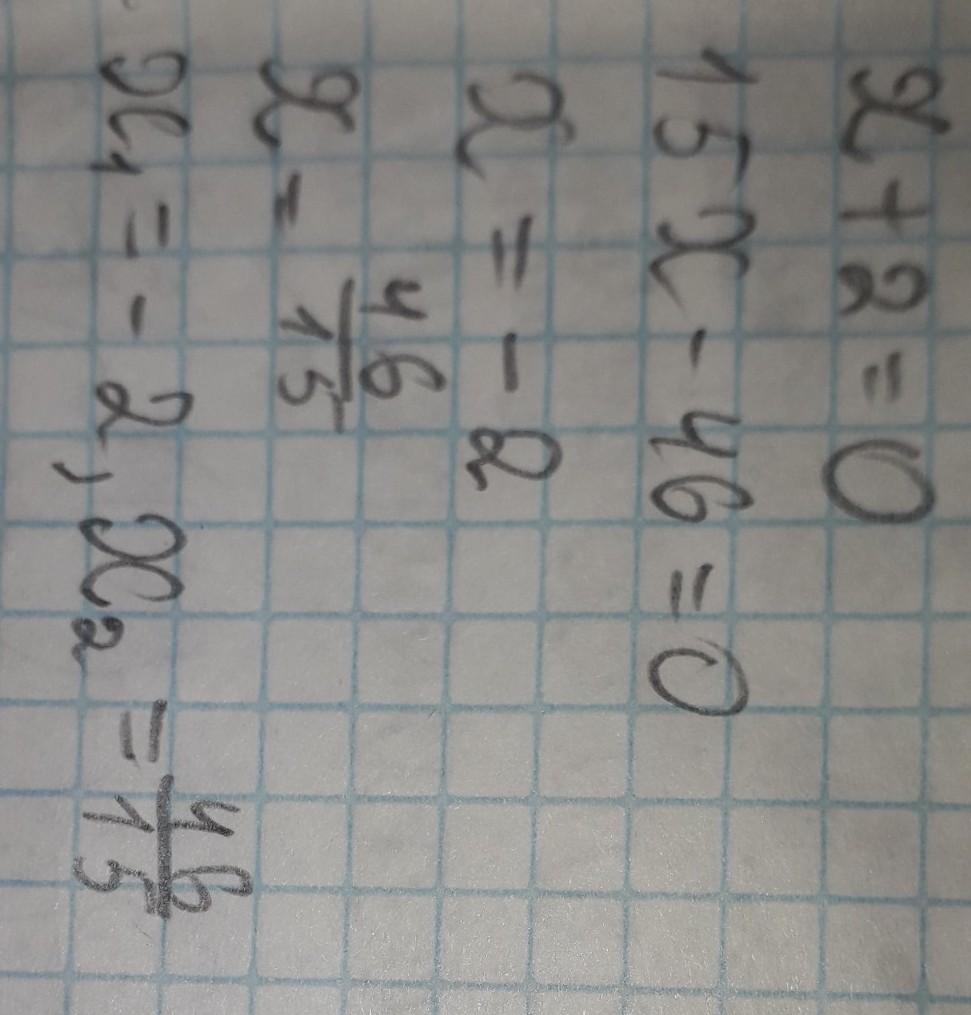 x+2=0
15x-46=0
x=-2
x=46/15
x₁=-2, x₂=46/15